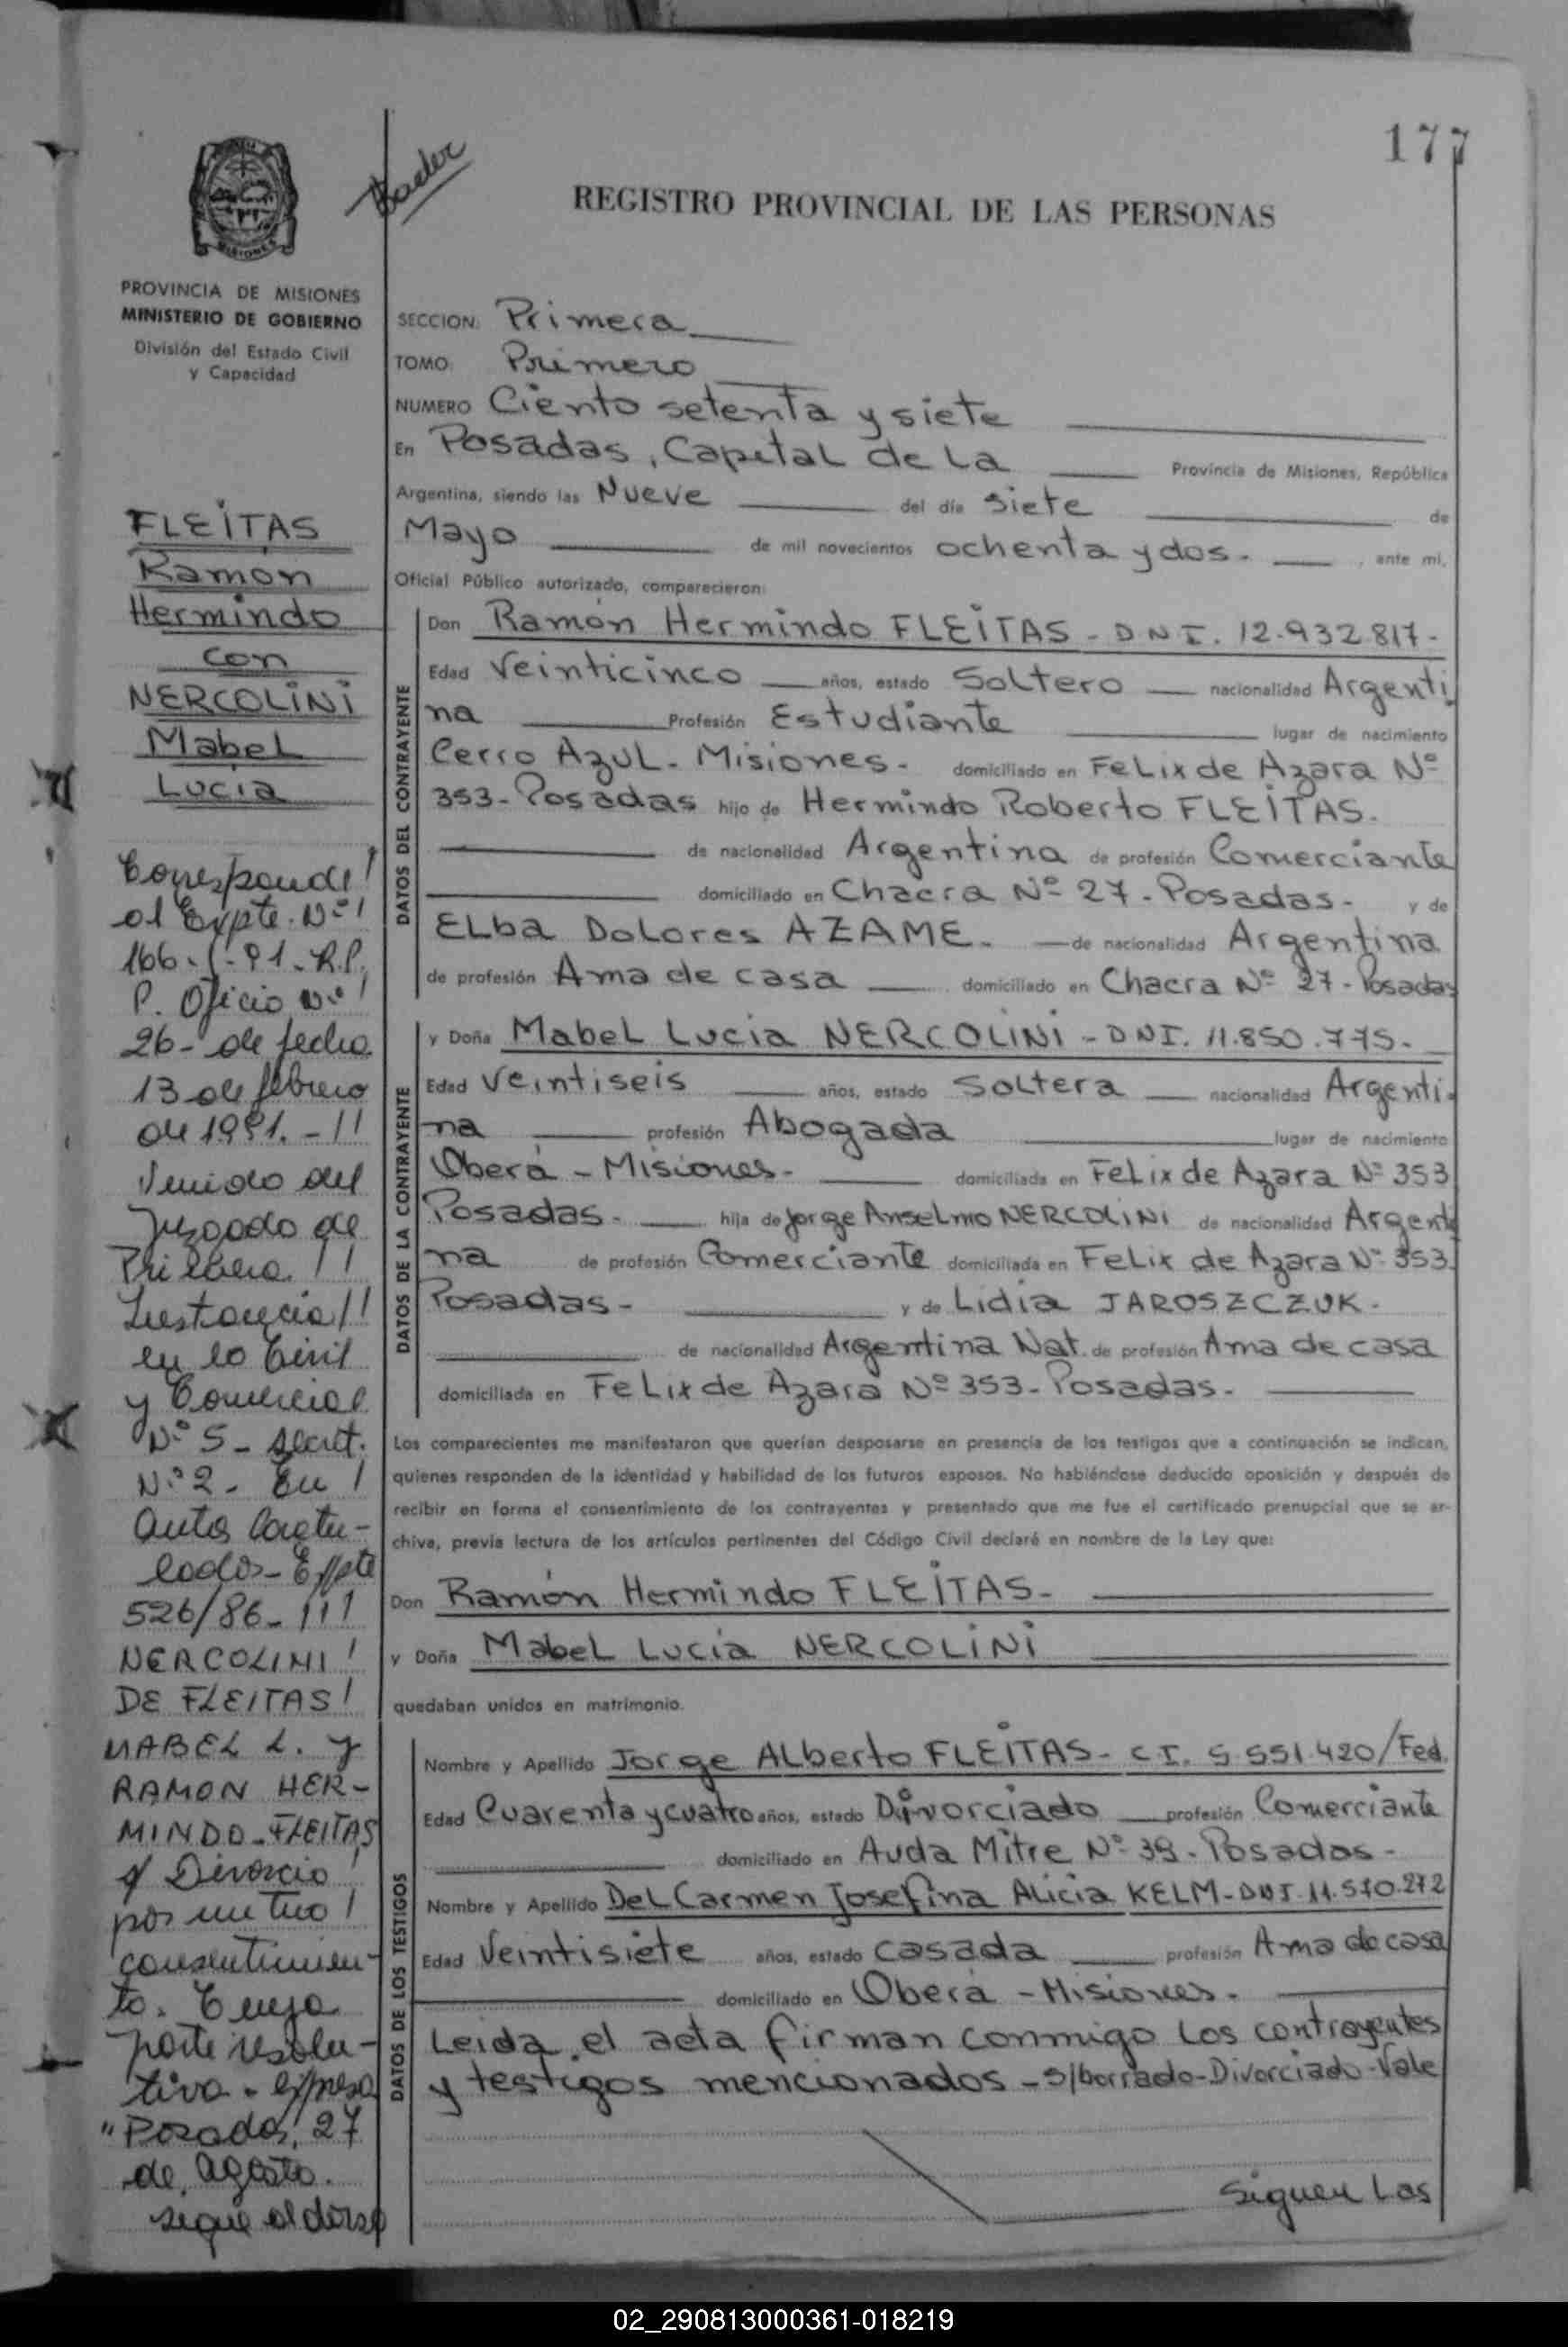 177
REGISTRO PROVINCIAL DE LAS PERSONAS
MISIONES
PROVINCIA DE MISIONES
MINISTERIO DE GOBIERNO
División del Estado Civil
y Capacidad
FLEITAS
Ramón
Hermindo
con
NERCOLINI
Mabel
Lucia
Corresponde
al Expte. Nº
166-
P. Oficio Nº
26- de fecha
13 de febrero
de 1991.-
Venido del
Juzgado de
Primera
Instancia
en lo Civil
y Comercial
Nº 5 - Secret.
Nº 2 - En
autos Caratu-
lados- Expte
526/86-
NERCOLINI
DE FLEITAS
MABEL L. y
RAMON HER-
MINDO-FLEITAS
s/ Divorcio
por mutuo
consentimien-
to. Cuya
parte resolu-
tiva - expresa
"Posadas, 27
de, agosto.
sigue al dorso
SECCION: Primera
TOMO: Primero
NUMERO Ciento setenta y siete
En Posadas, Capital de La Provincia de Misiones, República
Argentina, siendo las Nueve del día siete de
Mayo de mil novecientos ochenta y dos. , ante mi,
Oficial Público autorizado, comparecieron:
DATOS DEL CONTRAYENTE
Don Ramón Hermindo FLEITAS - DNI. 12.932.817-
Edad Veinticinco años, estado Soltero nacionalidad Argenti
na Profesión Estudiante lugar de nacimiento
Cerro Azul - Misiones - domiciliado en Felix de Azara Nº
353- Posadas hijo de Hermindo Roberto FLEITAS.
de nacionalidad Argentina de profesión Comerciante
domiciliado en Chacra Nº 27 - Posadas- y de
Elba Dolores AZAME. de nacionalidad Argentina
de profesión Ama de casa domiciliado en Chacra Nº 27 - Posadas
DATOS DE LA CONTRAYENTE
y Doña Mabel Lucia NERCOLINI - DNI. 11.850.775-
Edad Veintiseis años, estado Soltera nacionalidad Argenti-
na profesión Abogada lugar de nacimiento
Oberá - Misiones- domiciliada en Felix de Azara Nº 353
Posadas- hija de Jorge Anselmo NERCOLINI de nacionalidad Argenti
na de profesión Comerciante domiciliada en Felix de Azara Nº 353.
Posadas- y de Lidia JAROSZCZUK-
de nacionalidad Argentina Nat. de profesión Ama de casa
domiciliada en Felix de Azara Nº 353- Posadas-
Los comparecientes me manifestaron que querían desposarse en presencia de los testigos que a continuación se indican,
quienes responden de la identidad y habilidad de los futuros esposos. No habiéndose deducido oposición y después de
recibir en forma el consentimiento de los contrayentes y presentado que me fue el certificado prenupcial que se ar-
chiva, previa lectura de los artículos pertinentes del Código Civil declaré en nombre de la Ley que:
Don Ramón Hermindo FLEITAS-
y Doña Mabel Lucía NERCOLINI
quedaban unidos en matrimonio.
DATOS DE LOS TESTIGOS
Nombre y Apellido Jorge Alberto FLEITAS- C.I. 5.551.420/Fed.
Edad Cuarenta y cuatro años, estado Divorciado profesión Comerciante
domiciliado en Avda Mitre Nº 39- Posadas-
Nombre y Apellido Del Carmen Josefina Alicia KELM-DNI. 11.570.272
Edad Veintisiete años, estado Casada profesión Ama de casa
domiciliado en Oberá - Misiones.
Leida, el acta firman conmigo los contrayentes
y testigos mencionados - s/borrado-Divorciado-Vale
Siguen Las
02_290813000361-018219